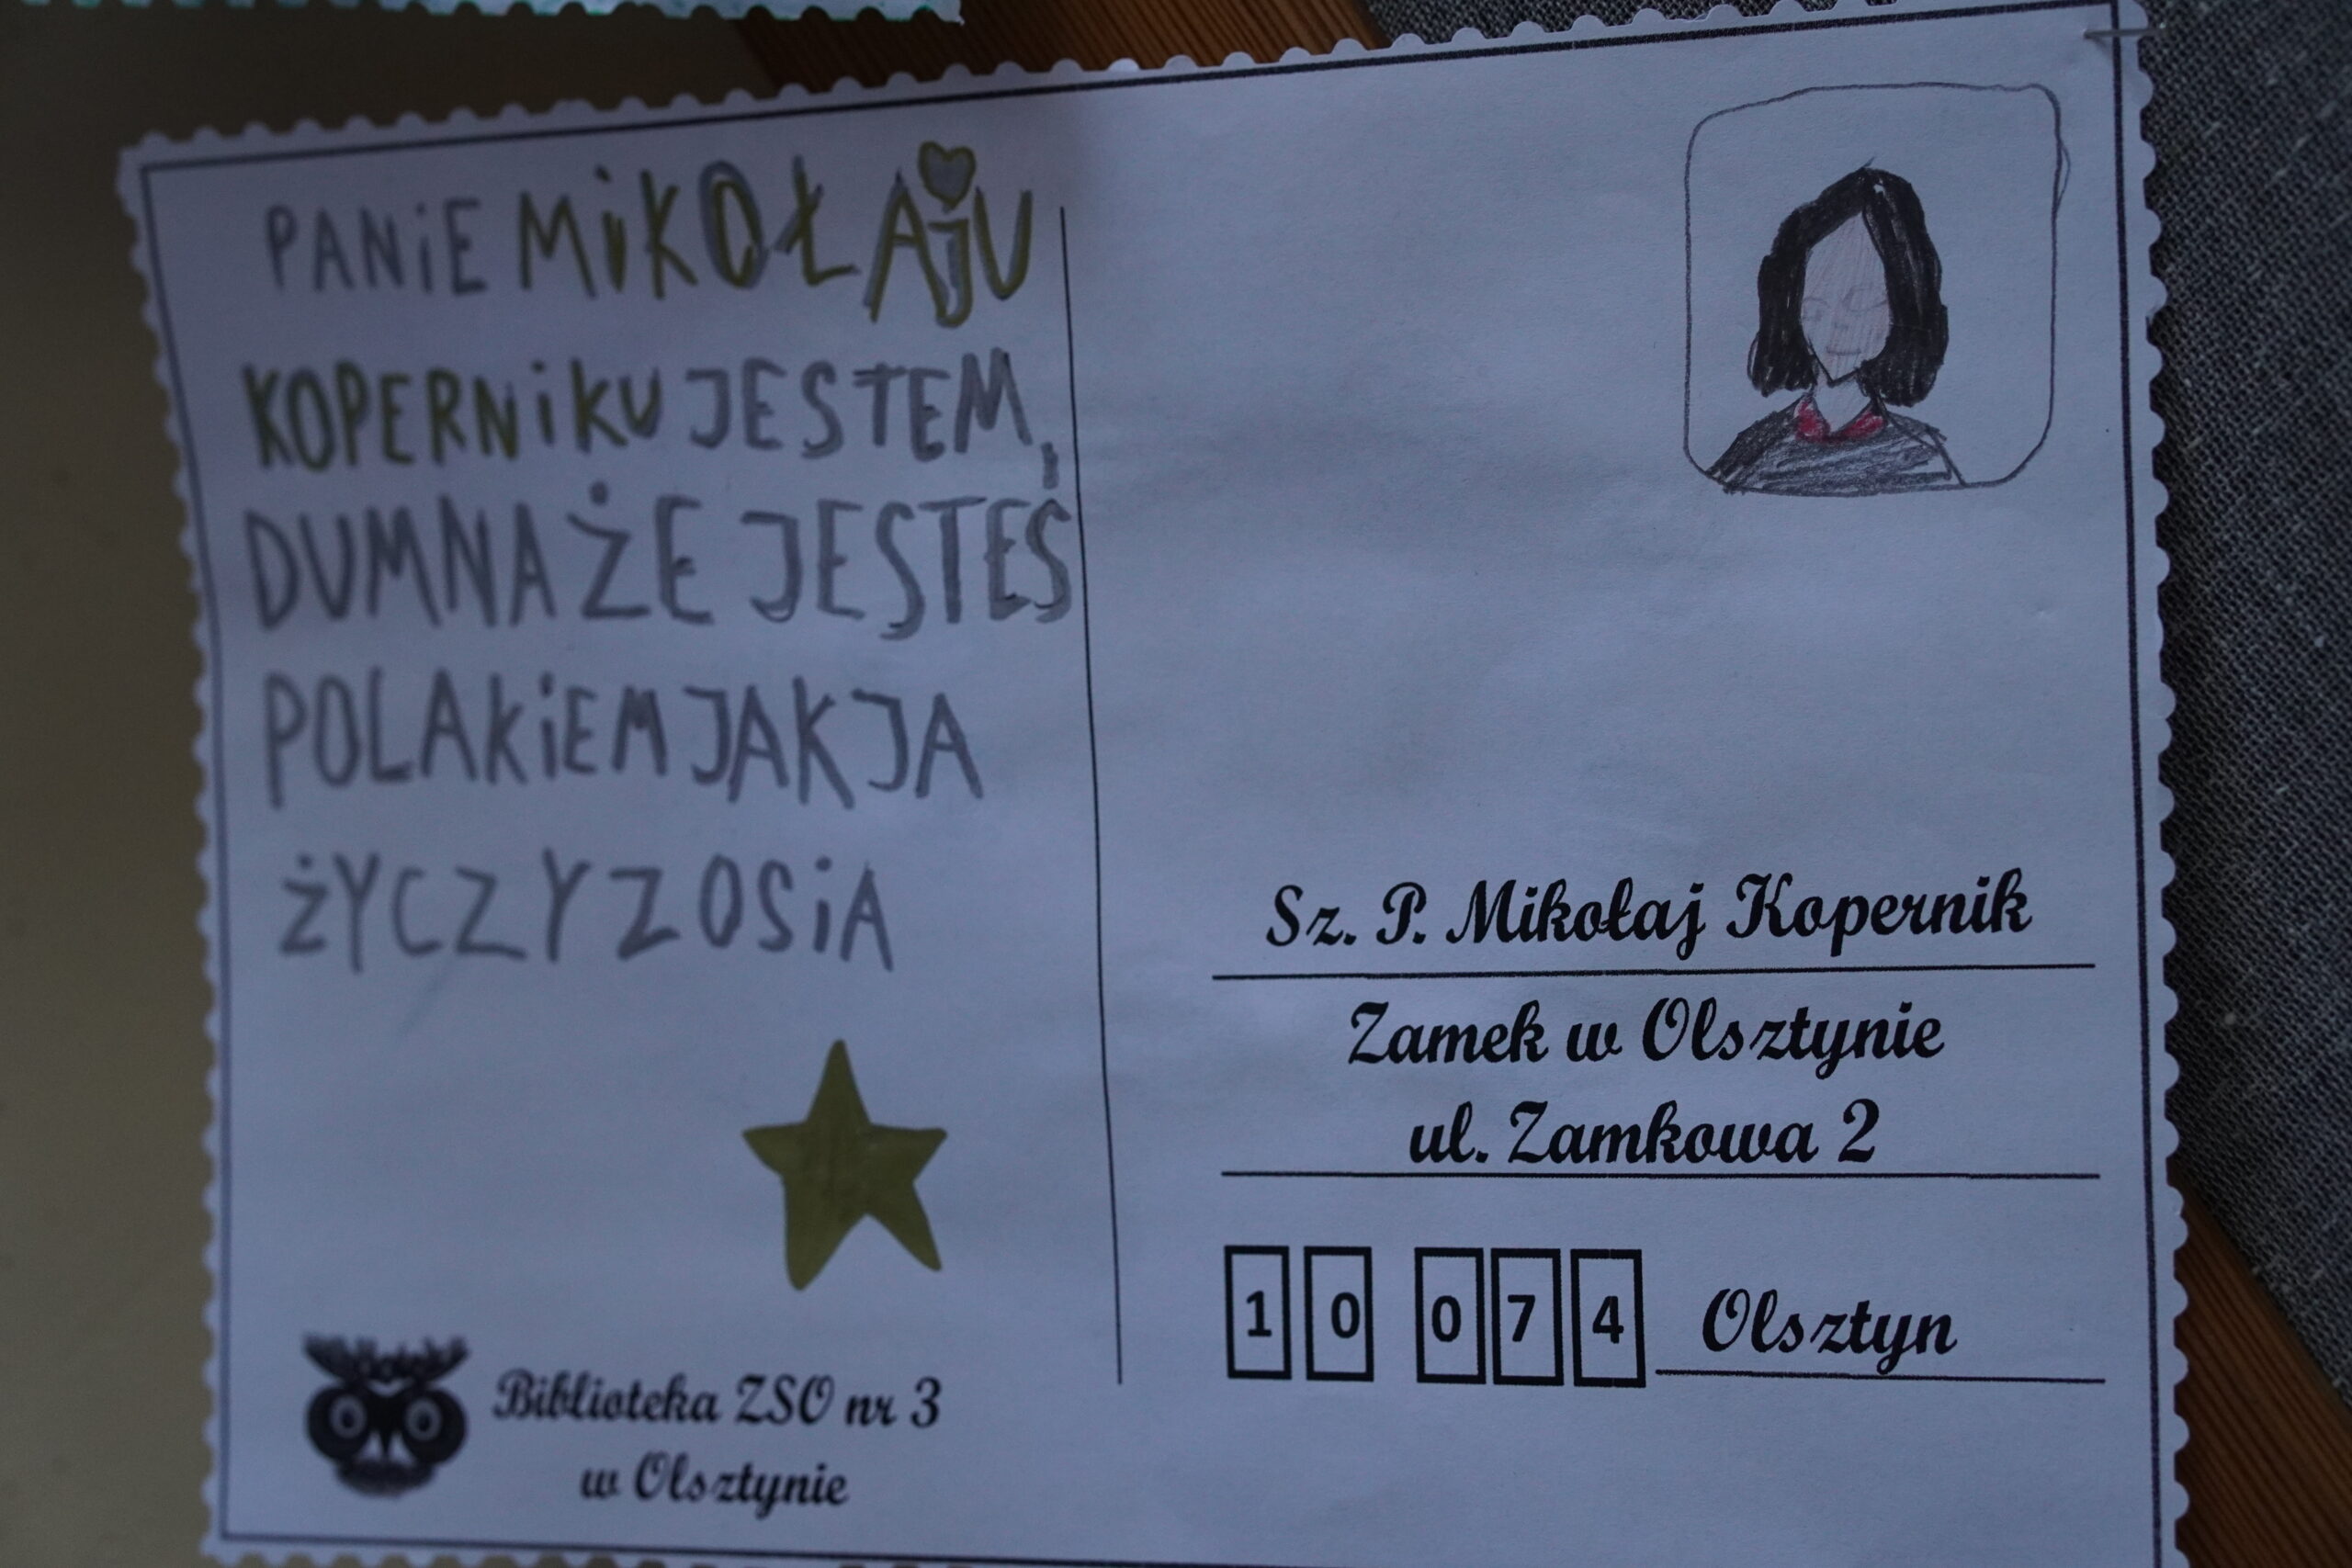 PANiE MiKOŁAjU
KOPERNiKU JESTEM,
DUMNA ŻE JESTEŚ
POLAKiEM JAK JA
ŻYCZY ZOSiA
Biblioteka ZSO nr 3
w Olsztynie
Sz. P. Mikołaj Kopernik
Zamek w Olsztynie
ul. Zamkowa 2
10 074 Olsztyn